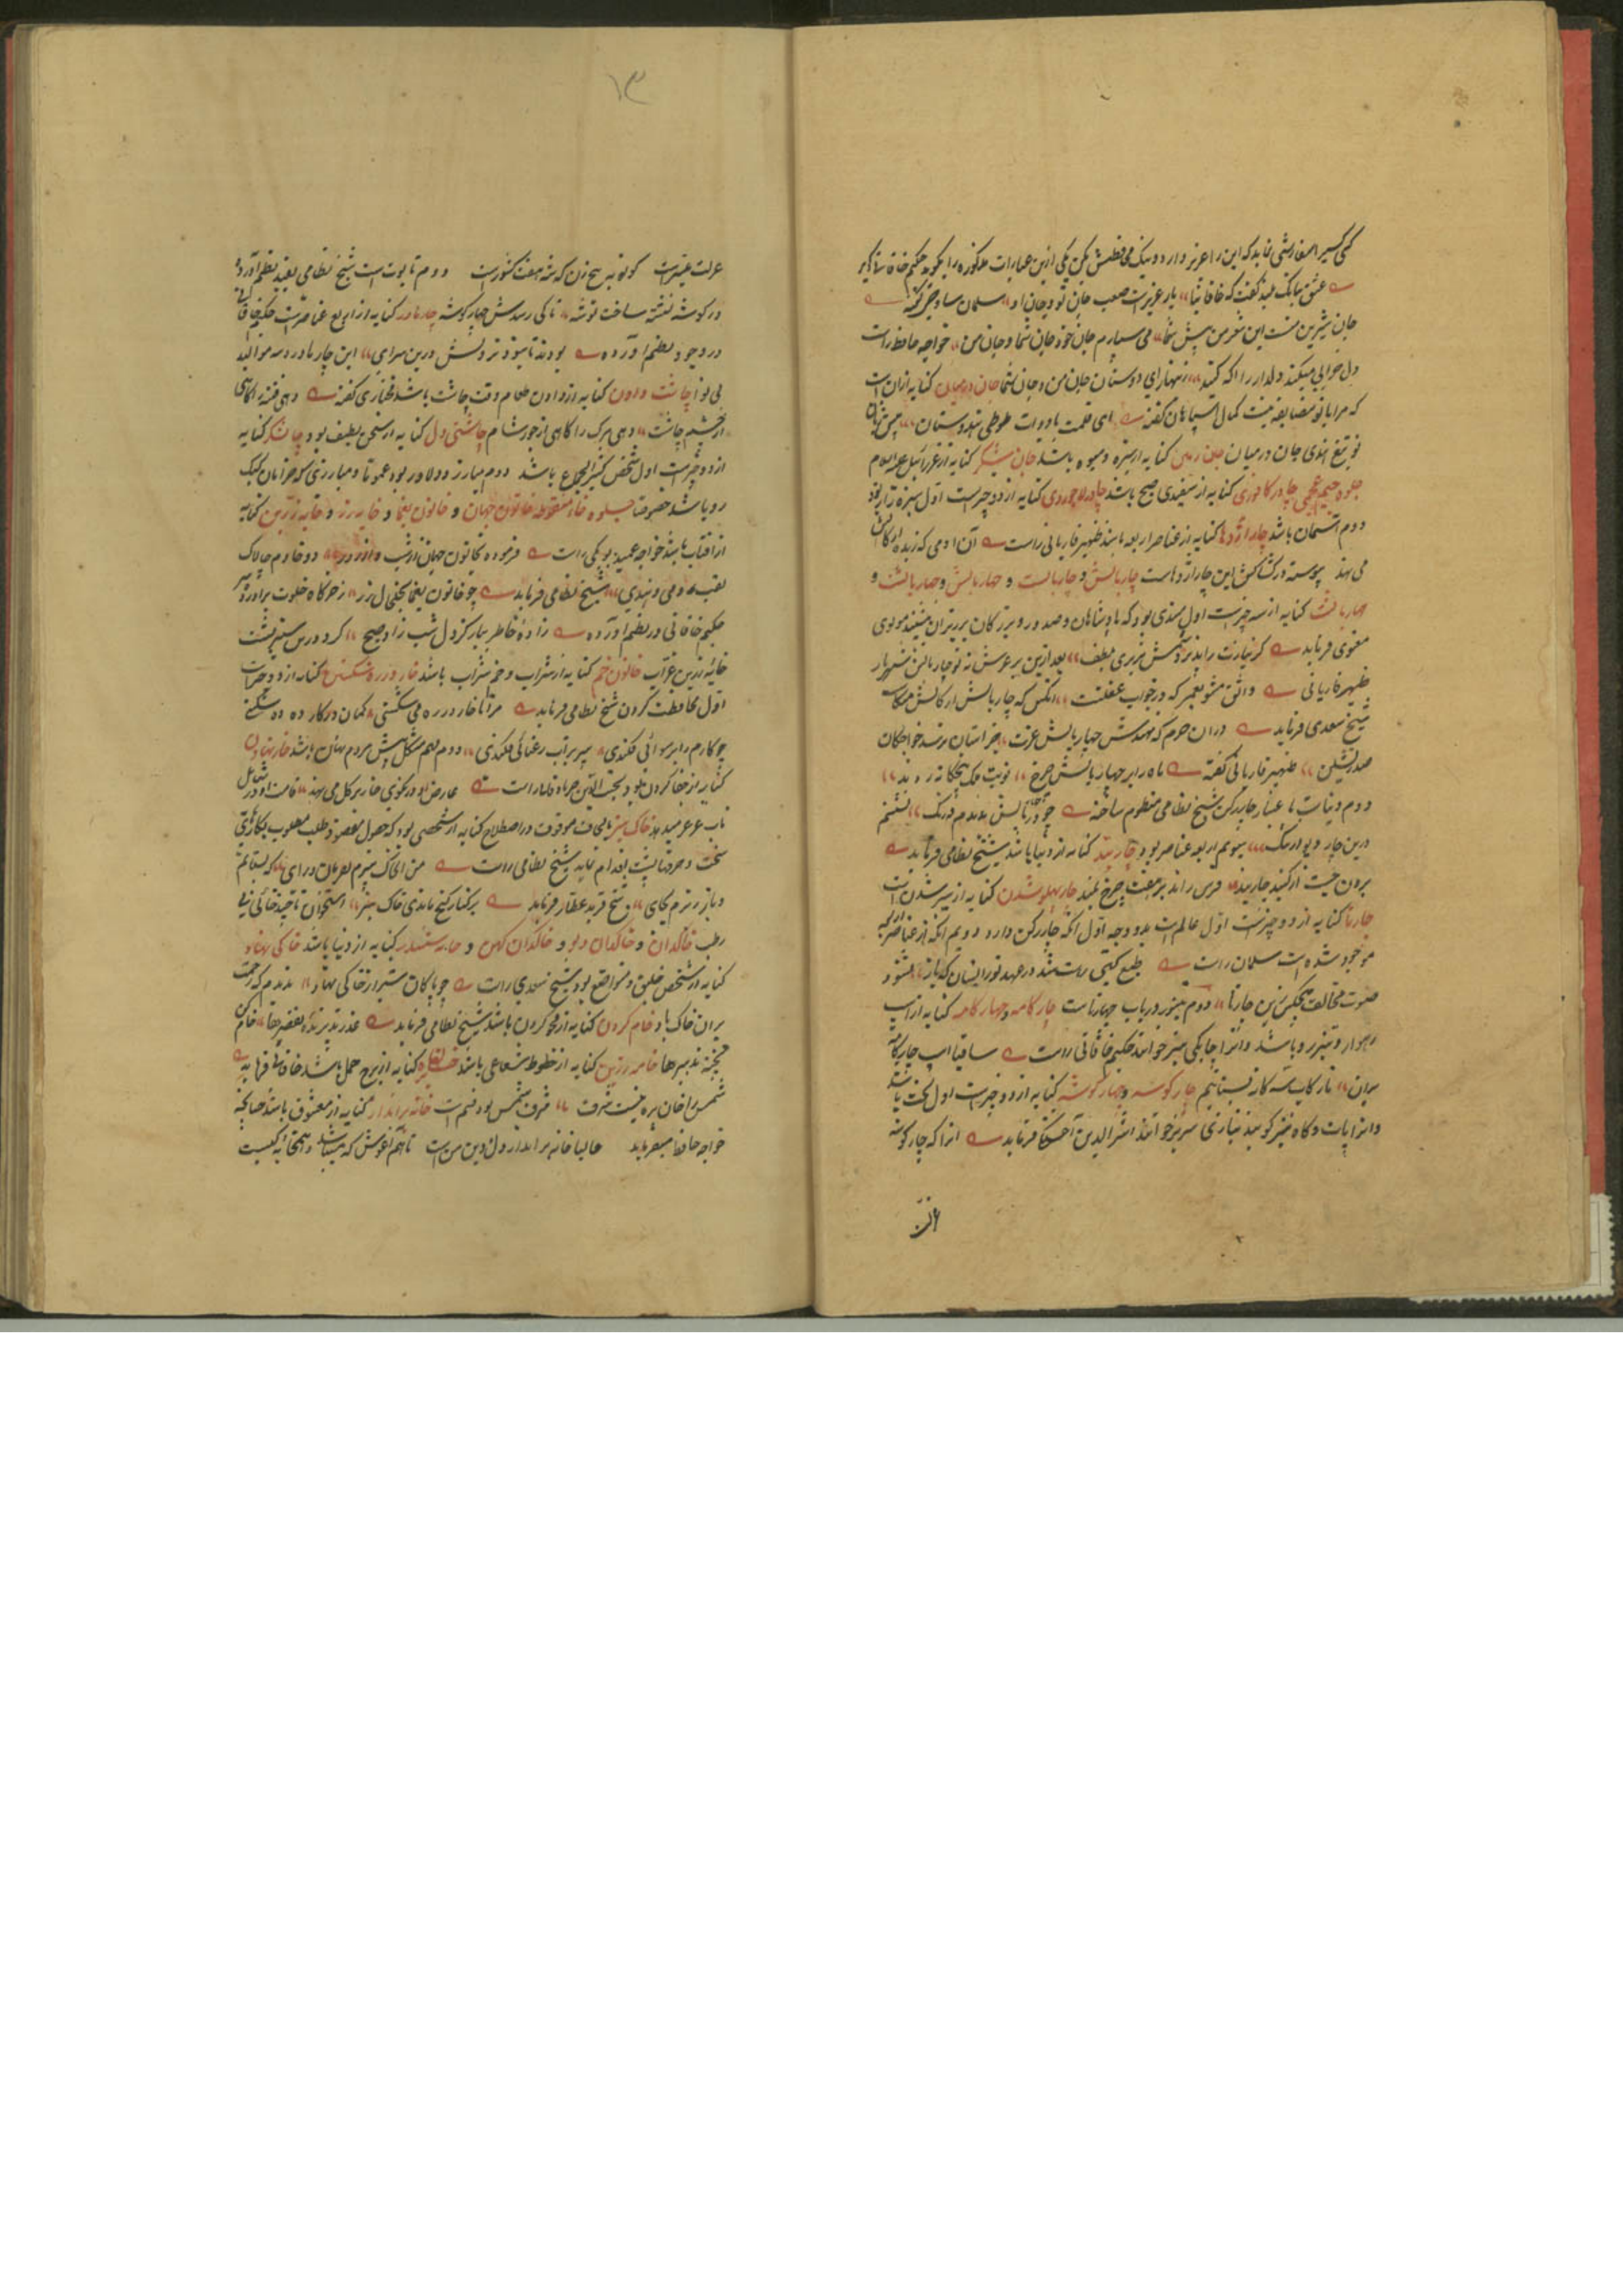 کسی کسیرا سفارشی نماید که این را عزیز دارد و نیک محافظتش بکن یکی ازین عبارات مذکوره را بگوید حکیم خاقانی
عشق ببانگ بلند گفت که خاقانیا یار عزیزست صعب جان تو و جان او سلمان ساوجی گفته
جان شیرین منست این شعر من پیش شما می سپارم جان خود جان شما و جان من خواجه حافظ راست
دل خرابی میکند دلدار را آگه کنید زینهار ای دوستان جان من و جان شما جان در میان کنایه از آن است
که مرا با تو مضایقه نیست کمال سپاهان گفته ای قلمت بادوات طوطی هندوستان پیش
تو تیغ هندی جان در میان جان زمین کنایه از سبزه و میوه باشد جان شکر کنایه از عزرائیل علیه السلام
جلوه جیم عجمی چادر کافوری کنایه از سفیدی صبح باشد چادر لاجوردی کنایه از دو چیزست اول سبزه زار بود
دوم آسمان باشد چار اژدها کنایه از عناصر اربعه باشد ظهیر فاریابی راست آن آدمی که زبده ارکانش
می نهند پیوسته در کشاکش این چار اژدهاست چار بالش و چار بالست و چهار بالش و چهار بالشت و
چهار بالشت کنایه از سه چیزست اول مسندی بود که پادشاهان و صدور و بزرگان بر زبر آن نشینند مولوی
معنوی فرماید گر زیارت راند بر آتش بریزی لطف بعد ازین بر عرش نه تو چار بالش شهریار
ظهیر فاریابی واثق مشو بعمر که در خواب غفلتست آنکس که چار بالش ارکانش متکاست
شیخ سعدی فرماید در آن حرم که نهندش چهار بالش عزت جز آستان نرسد خواجگان
صدر نشین ظهیر فاریابی گفته ماه را بر چهار بالش چرخ نوبت ملک پنجگانه زده اند
دوم دنیاست با عتبار چار رکن شیخ نظامی منظوم ساخته چو در چار بالش ندیدم درنگ نشستم
درین چار دیوار تنگ سیوم اربعه عناصر بود چار بند کنایه از دنیا باشد شیخ نظامی فرماید
برون جست از گنبد چار بند فرس راند بر هفت چرخ بلند چار پهلو شدن کنایه از سیر شدن است
چارتا کنایه از دو چیزست اول عالم است بدو وجه اول آنکه چار رکن دارد دویم آنکه از عناصر اربعه
موجود شده است سلمان راست طبع گیتی راست شد در عهد تو زانسان که باز نشنود
صوت مخالف هیچکس زین چارتا دوم تنبور و رباب چهارتاست چار گامه و چهار گامه کنایه از اسپ
رهوار و تیز رو باشد و آنرا چابکی نیز خوانند حکیم خاقانی راست ساقیا اسپ چار گامه
بران تا رکاب سه گانه بستانیم چار گوشه و چهار گوشه کنایه از دو چیزست اول تخت باشد
و آنرا پات و گاه نیز گویند بتازی سریر خوانند اثیر الدین اخسیکتی فرماید آنرا که چار گوشه
عزلت
۱۳
عزلت میسرست گو نوبه پنج زن که شه هفت کشورست دوم تابوت است شیخ نظامی بقید نظم آورده
در گوشه نشسته ساخت توشه تا کی رسدش چهار گوشه چار مادر کنایه از اربع عناصرست حکیم خاقانی
در وجود بنظم آورده بودند تا نبود نزولش درین سرای این چار مادر و سه موالید
بی نوا چاشت دادن کنایه از دادن طعام وقت چاشت باشد مختاری گفته دهی فتنه را گاهی
از خشم چاشت دهی مرگ را گاهی از جود شام چاشنی دل کنایه از سخن لطیف بود چاشنگر کنایه
از دو چیزست اول شخص کثیر الجماع باشد دوم مبارز و دلاور بود عموما و مبارزی که خرامان بجنگ
رود باشد خصوصا جلوه خاء منقوطه خاتون جهان و خاتون یغما و خایه زر و خایه زرین کنایه
از آفتاب باشد خواجه عمید لوبکی راست فرموده خاتون جهان از شب و از روز دو خادم چالاک
لقب رومی و هندی شیخ نظامی فرماید چو خاتون یغما بخلخال زر ز خرگاه خلوت برآورد سر
حکیم خاقانی در بنظم آورده زاده خاطر بیار کز دل شب زاد صبح کرد درین سبز طشت
خایه زرین عقاب خاتون خم کنایه از شراب و خم شراب باشد خار در ره شکستن کنایه از دو چیزست
اول محافظت کردن شیخ نظامی فرماید مرا تا خار در ره می شکستی کمان در کار ده ده می شکستی
چو کارم را برسوائی فکندی سپر بر آب رعنائی فکندی دوم مهم مشکل پیش مردم نهادن باشد خار نهادن
کنایه از جفا کردن بود نجیب الدین جرباد قانی راست عارض او در نکوئی خار بر گل می نهد قامت او در شمایل
تاب عرعر میدهد خاک بیز با کاف موقوف در اصطلاح کنایه از شخصی بود که حصول مقصود و طلب مطلوب بکارهای
سخت و حرفهای پست اقدام نماید شیخ نظامی راست من آن خاک بیزم بغربال رای که بستانم
و باز ریزم بجای شیخ فرید عطار فرماید بر کنار گنج ماندی خاک بیز استخوان تا چند خائی بی
رطب خاکدان و خاکدان دیو و خاکدان کهن و خانه ششدر کنایه از دنیا باشد خاکی نهاد
کنایه از شخص خلیق و متواضع بود شیخ سعدی راست چو پاکان شیراز خاکی نهاد ندیدم که رحمت
بر آن خاک باد خام کردن کنایه از محو کردن باشد شیخ نظامی فرماید عذر پذیرنده تقصیرها خام کن
پخته تدبیرها خامه زرین کنایه از خطوط شعاعی باشد کنایه از برج حمل باشد خاقانی فرماید
شمس را خان بره بیت شرف شرف شمس بود قسم خانه برانداز کنایه از معشوق باشد چنانچه
خواجه حافظ میفرماید حالیا خانه برانداز دل و دین من است تا هم آغوش که میباشد و همخانه کیست